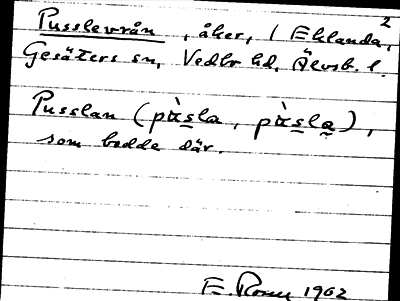 2
Pusslevrån, åker, 1 Ehlanda,
Gesäters sn, Vedbo hd, Älvsb. l.
Pusslan (pɯ̀sla, pɯ̀sla),
som bodde där.
E. 1962